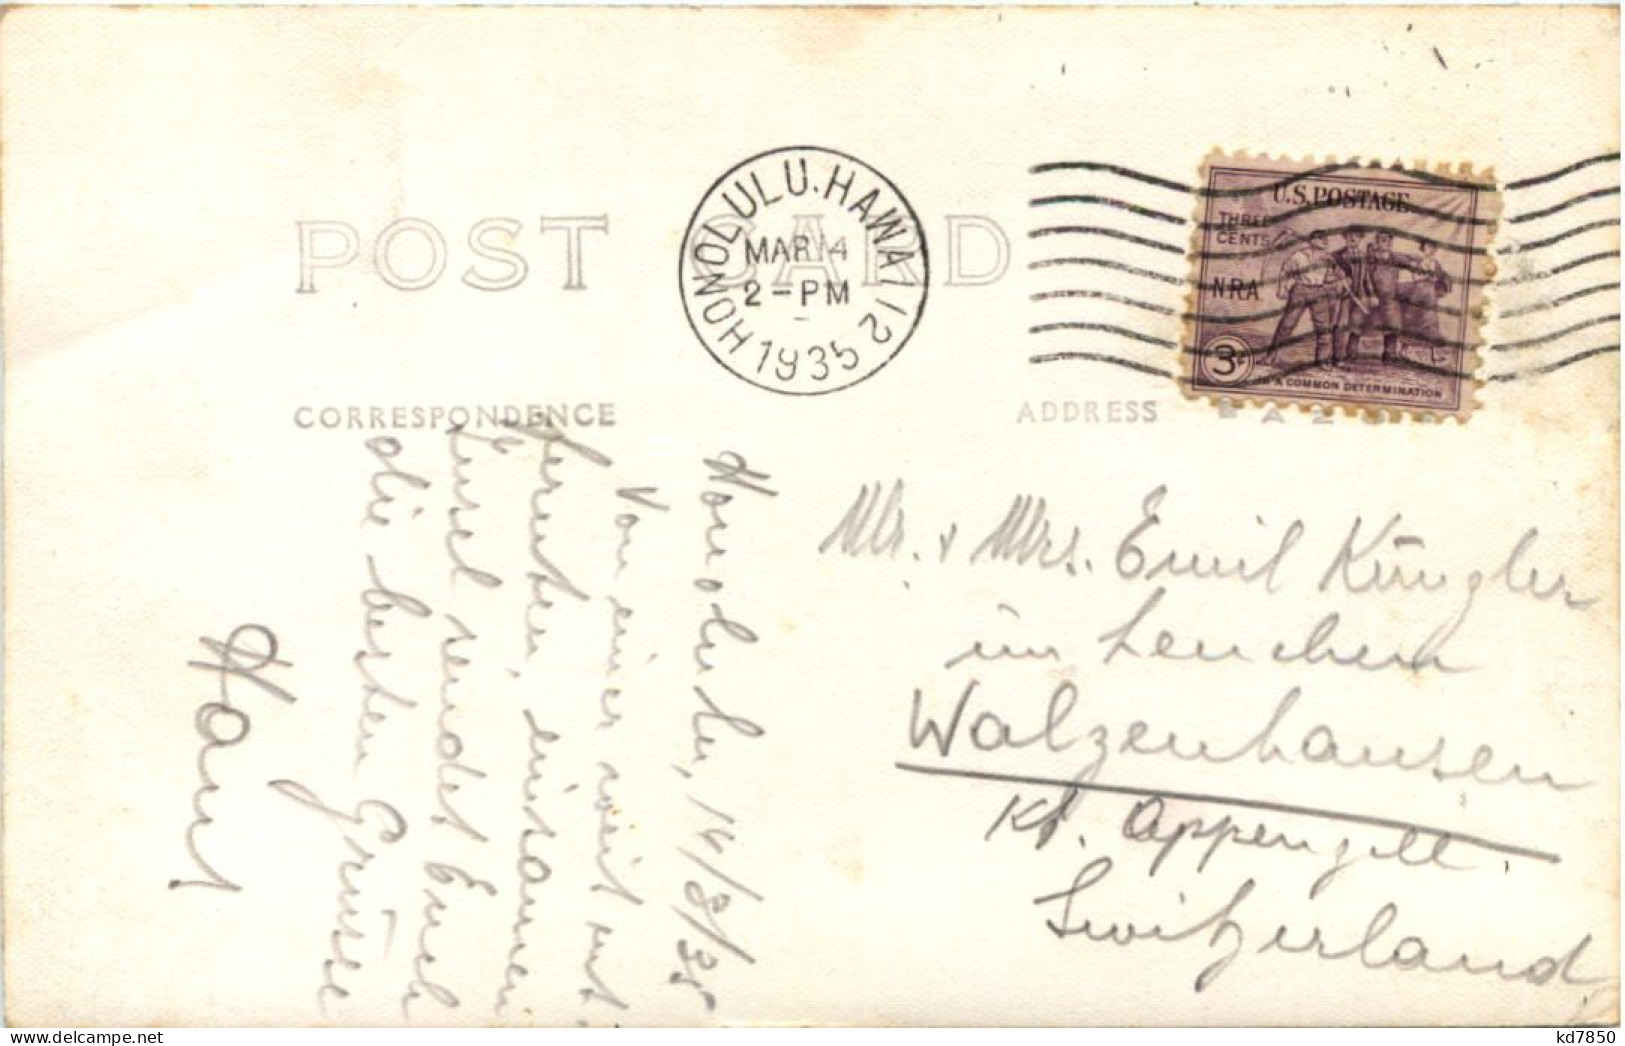 POST CARD
HONOLULU. HAWAII 2
MAR 14
2-PM
1935
U.S. POSTAGE
THREE
CENTS
NRA
3¢
IN A COMMON DETERMINATION
CORRESPONDENCE
ADDRESS
Honolulu, 14/3/35
Von einer weit ent
fernten, einsamen
Insel sendet Euch
die besten Grüsse
Hans
Mr. & Mrs. Emil Künzler
im Leuchen
Walzenhausen
Kt. Appenzell
Switzerland
kd7850